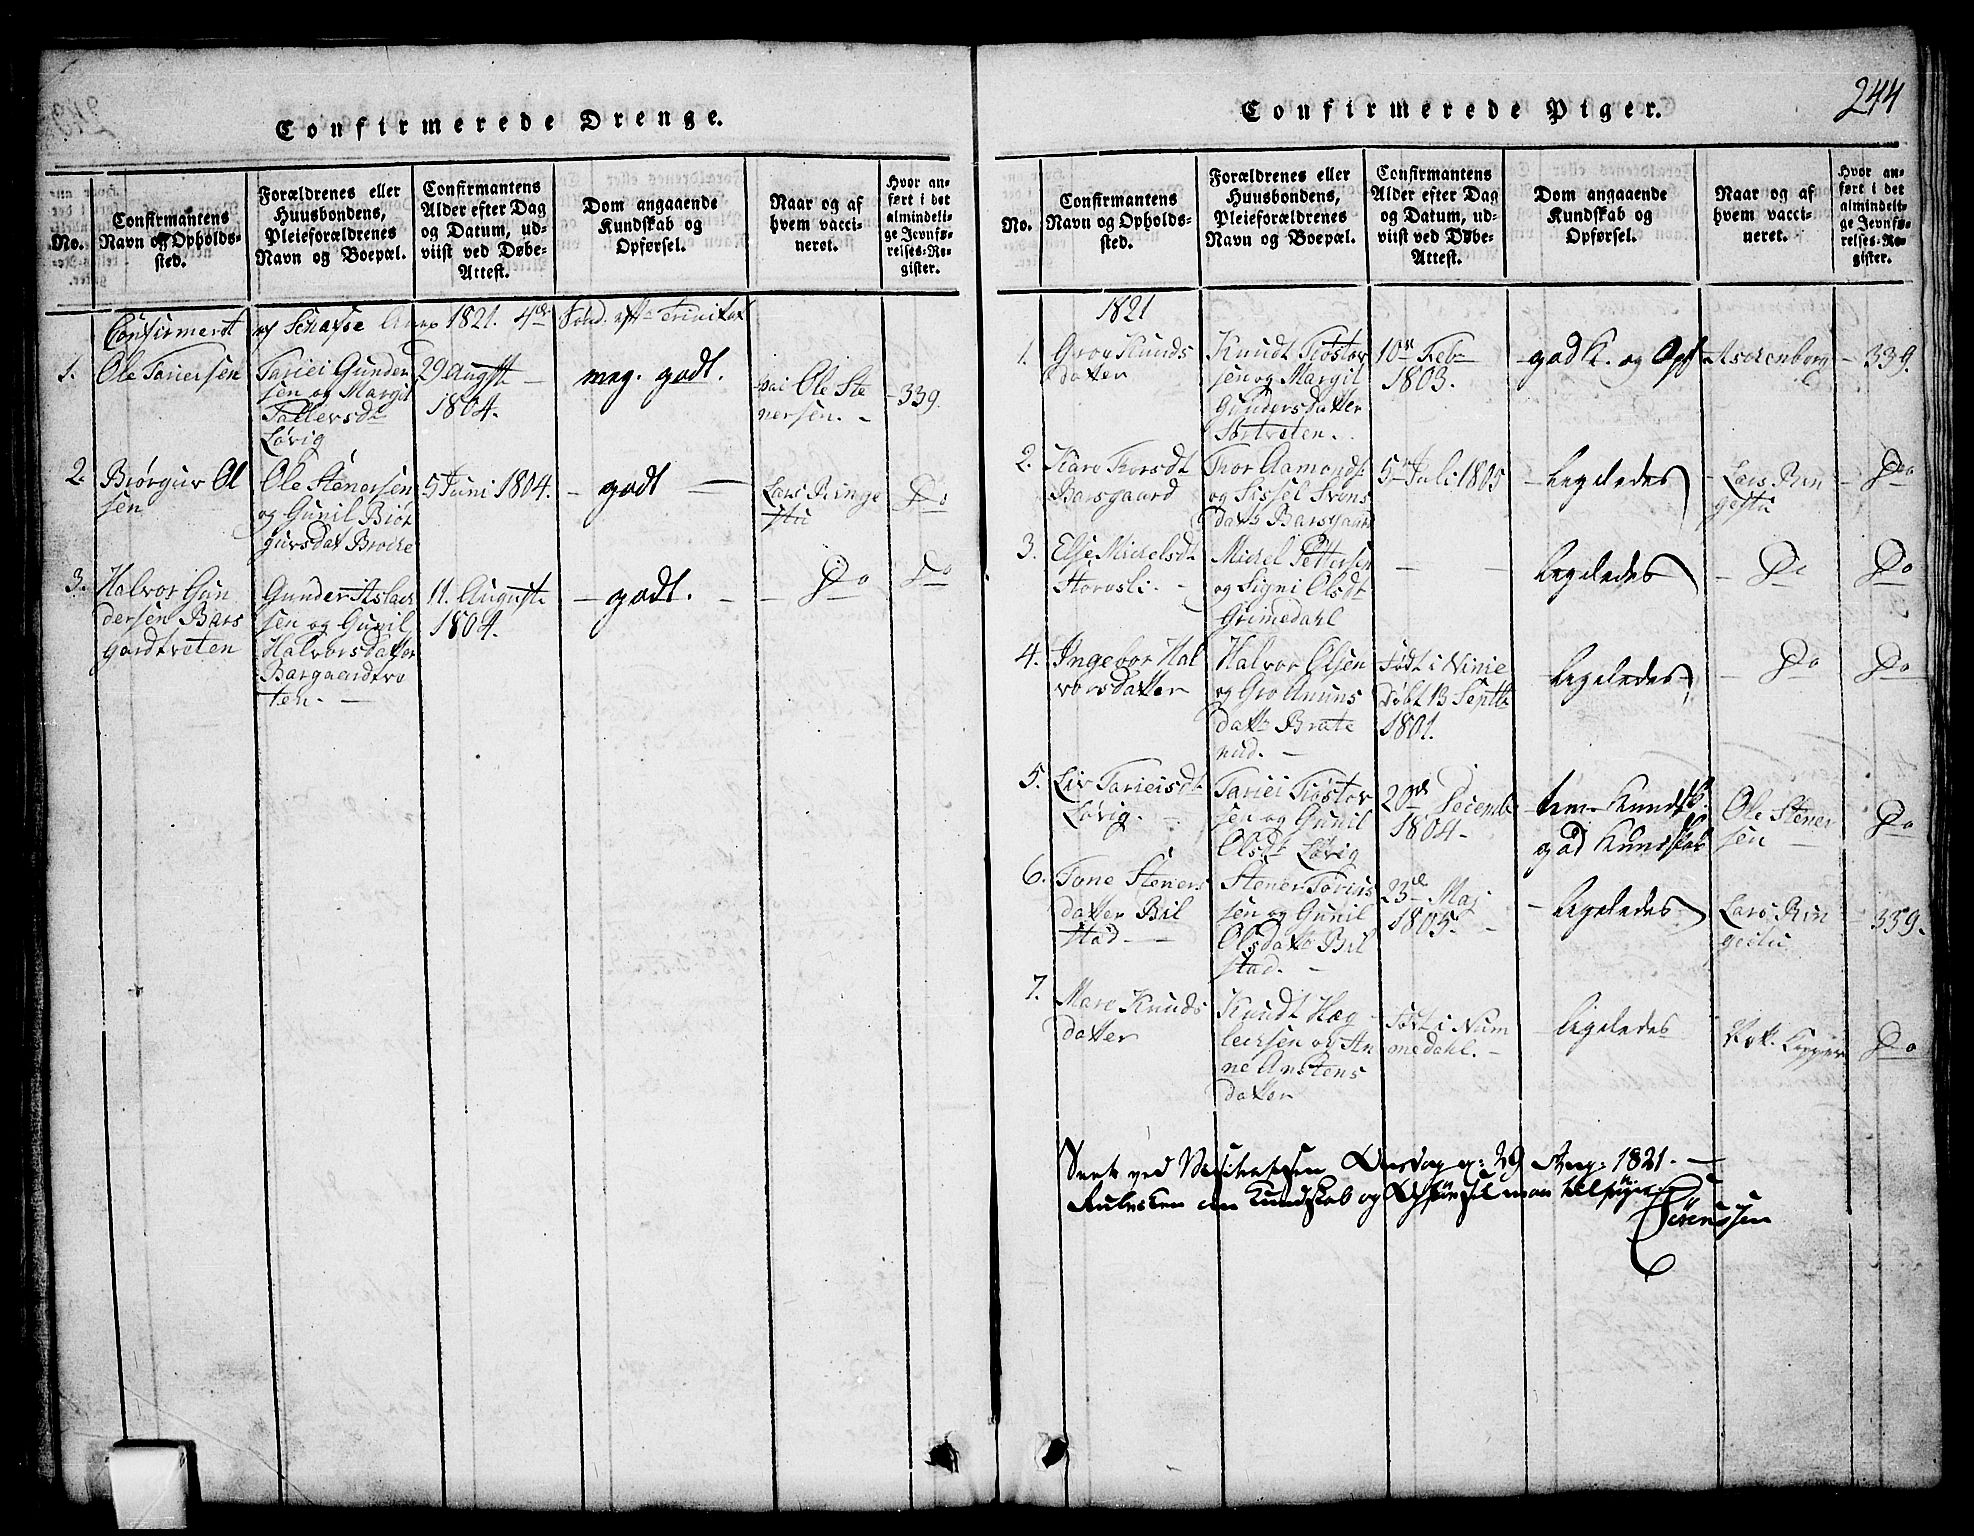 Confirmerede Drenge.
No.
Confirmantens
Navn og Opholds-
sted.
Forældrenes eller
Huusbondens,
Pleieforældrenes
Navn og Boepæl.
Confirmantens
Alder efter Dag
og Datum, ud-
viist ved Døbe-
Attest.
Dom angaaende
Kundskab og
Opførsel.
Naar og af
hvem vacci-
neret.
Hvor an-
ført i det
almindeli-
ge Jevnfø-
relses-Re-
gister.
Confirmeret af Schasse Anno 1821. 4de Sønd. eftr Trinitat
1.
Ole Tarjersen
Tariei Gunder
sen og Margit
Løvig
29 Augstt
1804.
meg. godt.
Ole Ste
nersen.
339.
2.
Biørguv Ol
sen
Ole Stenersen
og Gunil Biør
guvsdat
5 Juni 1804.
godt
Lars Ringe
stu
Do
3.
Halvor Gun
dersen Bars
gardtveten
Gunder Aslach
sen og Gunil
Halvorsdatter
Bargaardtve
ten.
11. Augustt
1804.
godt.
Do
Do
Confirmerede Piger.
244
No.
Confirmantens
Navn og Opholds-
sted.
Forældrenes eller
Huusbondens,
Pleieforældrenes
Navn og Boepæl.
Confirmantens
Alder efter Dag
og Datum, ud-
viist ved Døbe-
Attest.
Dom angaaende
Kundskab og
Opførsel.
Naar og af
hvem vacci-
neret.
Hvor an-
ført i det
almindeli-
ge Jevnfø-
relses-Re-
gister.
1821
1.
Groe Knuds
datter
Knudt Tiøstov
sen og Margit
Gundersdatter
Sortveten.
10de Febr
1803.
god K. og Opf
339.
2.
Kare Thorsdt
Barsgaard
Thor Aamonds
og Sissel Svens
datr Barsgaard
5te Juli 1805
ligeledes
Lars Rin
gestu
Do
3.
Else Michelsdt
Michel Petersen
og Signi Olsdt
Grimedahl
ligeledes
Do
Do
4.
Ingebor Hal
vorsdatter
Halvor Olsen
og Gro Anuns
datr Brate
rud.
Født i Vinie
Døbt 13 Septbr
1801.
ligeledes
Do
Do
5.
Liv Tarieisdt
Løvig.
Tariei Tiøstov
sen og Gunil
Olsdr Løvig
20de Decemb
1804
Kundsk.
god Kundskab
Ole Stener
sen
Do
6.
Tone Steners
datter Bil
stad
Stener
sen og Gunil
Olsdatr Bil
stad.
23de Maj
1805.
ligeledes
Lars Rin
gestu
339.
7.
Mare Knuds
datter
Knudt Hæg
leichsen og An
ne Anstens
datter
Født i Num
medahl.
ligeledes
Do
Seet ved Visitatsen Onsdag d: 29 Aug: 1821.
om Kundskab og Opførsel maa tilføyes
Sørenssen